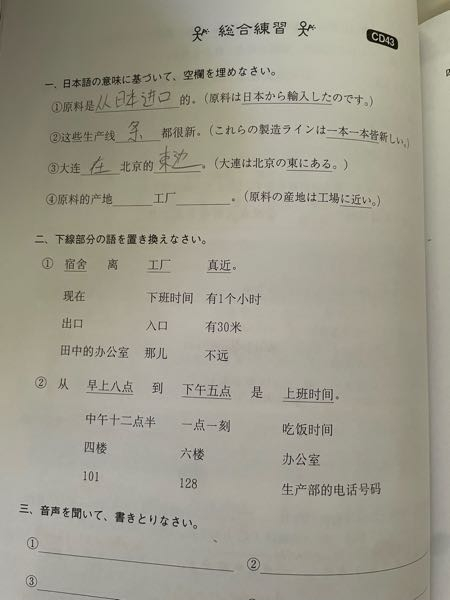 総合練習 CD43
一、日本語の意味に基づいて、空欄を埋めなさい。
①原料是从日本进口的。(原料は日本から輸入したのです。)
②这些生产线 条 都很新。(これらの製造ラインは一本一本皆新しい。)
③大连 在 北京的 東边 。(大連は北京の東にある。)
④原料的产地______工厂______。(原料の産地は工場に近い。)
二、下線部分の語を置き換えなさい。
① 宿舍 离 工厂 真近。
现在 下班时间 有1个小时
出口 入口 有30米
田中的办公室 那儿 不远
② 从 早上八点 到 下午五点 是 上班时间。
中午十二点半 一点一刻 吃饭时间
四楼 六楼 办公室
101 128 生产部的电话号码
三、音声を聞いて、書きとりなさい。
① ②
③